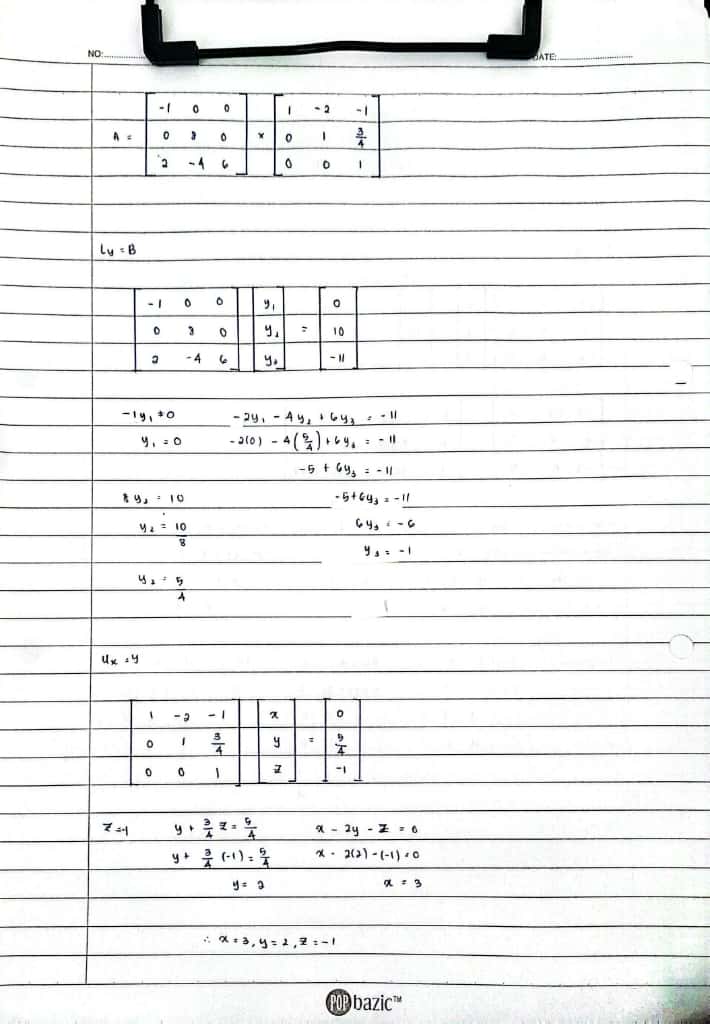 NO: DATE:
A = [ -1 0 0 ; 0 8 0 ; 2 -4 6 ] x [ 1 -2 -1 ; 0 1 3/4 ; 0 0 1 ]
Ly = B
[ -1 0 0 ; 0 8 0 ; 2 -4 6 ] [ y₁ ; y₂ ; y₃ ] = [ 0 ; 10 ; -11 ]
-1y₁ = 0 -2y₁ - 4y₂ + 6y₃ = -11
y₁ = 0 -2(0) - 4(5/4) + 6y₃ = -11
-5 + 6y₃ = -11
8y₂ = 10 -5 + 6y₃ = -11
y₂ = 10/8 6y₃ = -6
y₃ = -1
y₂ = 5/4
Ux = y
[ 1 -2 -1 ; 0 1 3/4 ; 0 0 1 ] [ x ; y ; z ] = [ 0 ; 5/4 ; -1 ]
z = -1 y + 3/4 z = 5/4 x - 2y - z = 0
y + 3/4 (-1) = 5/4 x - 2(2) - (-1) = 0
y = 2 x = 3
∴ x = 3, y = 2, z = -1
POP bazic™